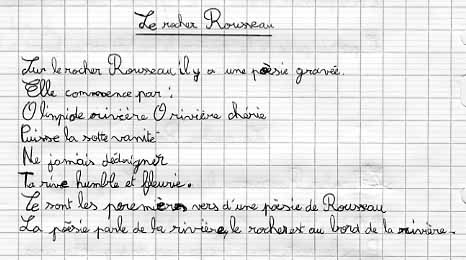 Le rocher Rousseau
Sur le rocher Rousseau il y a une poèsie gravée.
Elle commence par :
O limpide rivière O rivière chérie
Puisse la sotte vanité
Ne jamais dédaigner
Ta rive humble et fleurie.
Ce sont les poremières vers d'une poèsie de Rousseau
La poèsie parle de la rivière, le rocher est au bord de la rivière.